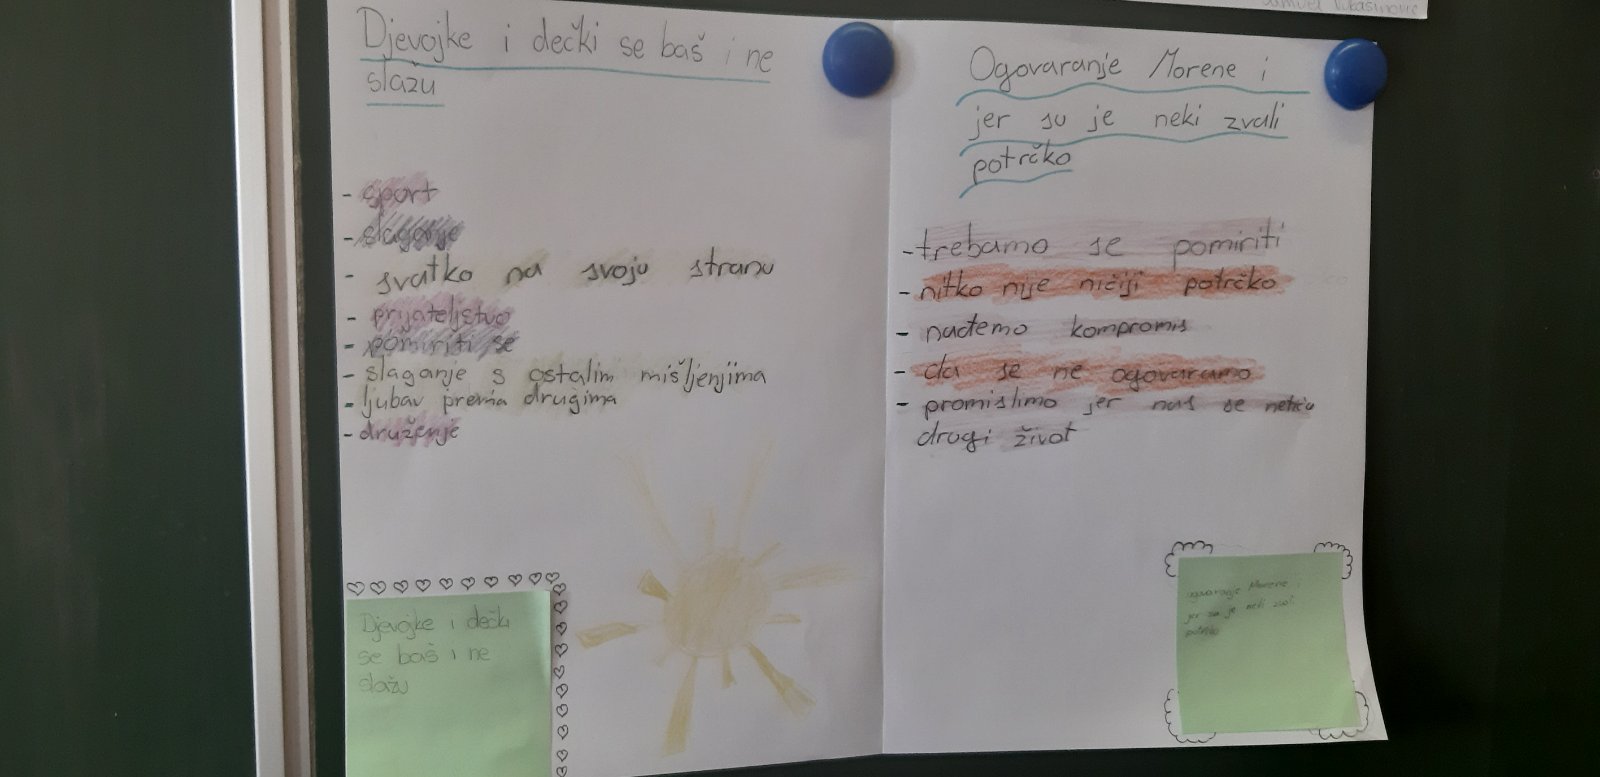 Djevojke i dečki se baš i ne
slažu
- sport
- slaganje
- svatko na svoju stranu
- prijateljstvo
- pomiriti se
- slaganje s ostalim mišljenjima
- ljubav prema drugima
- druženje
Djevojke i dečki
se baš i ne
slažu
Ogovaranje Morene i
jer su je neki zvali
potrčko
- trebamo se pomiriti
- nitko nije ničiji potrčko
- nađemo kompromis
- da se ne ogovaramo
- promislimo jer nas se
drugi život
ogovaranje Morene i
jer su je neki zvali
potrčko